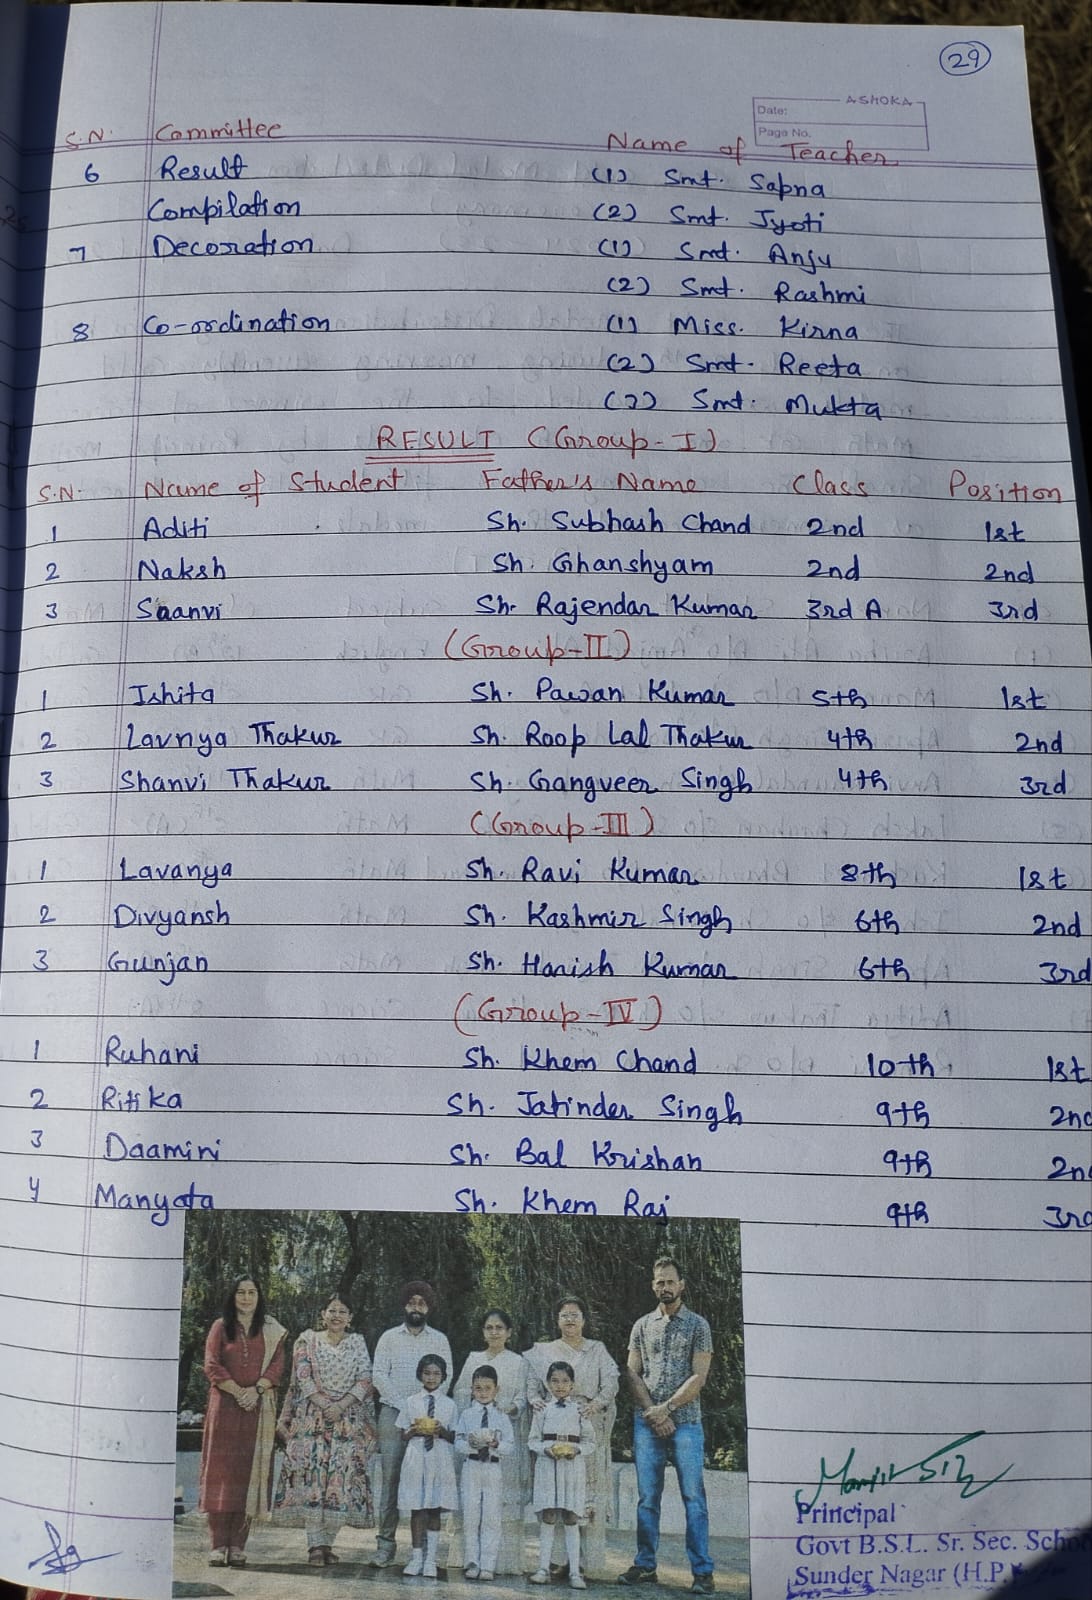 29
ASHOKA
Date:
Page No.
S.N. Committee Name of Teacher
6 Result (1) Smt. Sapna
Compilation (2) Smt. Jyoti
7 Decoration (1) Smt. Anju
(2) Smt. Rashmi
8 Co-ordination (1) Miss. Kirna
(2) Smt. Reeta
(3) Smt. Mukta
RESULT (Group-I)
S.N. Name of Student Father's Name Class Position
1 Aditi Sh. Subhash Chand 2nd 1st
2 Naksh Sh. Ghanshyam 2nd 2nd
3 Saanvi Sh. Rajendar Kumar 3rd A 3rd
(Group-II)
1 Ishita Sh. Pawan Kumar 5th 1st
2 Lavnya Thakur Sh. Roop Lal Thakur 4th 2nd
3 Shanvi Thakur Sh. Gangveer Singh 4th 3rd
(Group-III)
1 Lavanya Sh. Ravi Kumar 8th 1st
2 Divyansh Sh. Kashmir Singh 6th 2nd
3 Gunjan Sh. Harish Kumar 6th 3rd
(Group-IV)
1 Ruhani Sh. Khem Chand 10th 1st
2 Ritika Sh. Jatinder Singh 9th 2nd
3 Daamini Sh. Bal Krishan 9th 2nd
4 Manyata Sh. Khem Raj 9th 3rd
Principal
Govt B.S.L. Sr. Sec. School
Sunder Nagar (H.P.)